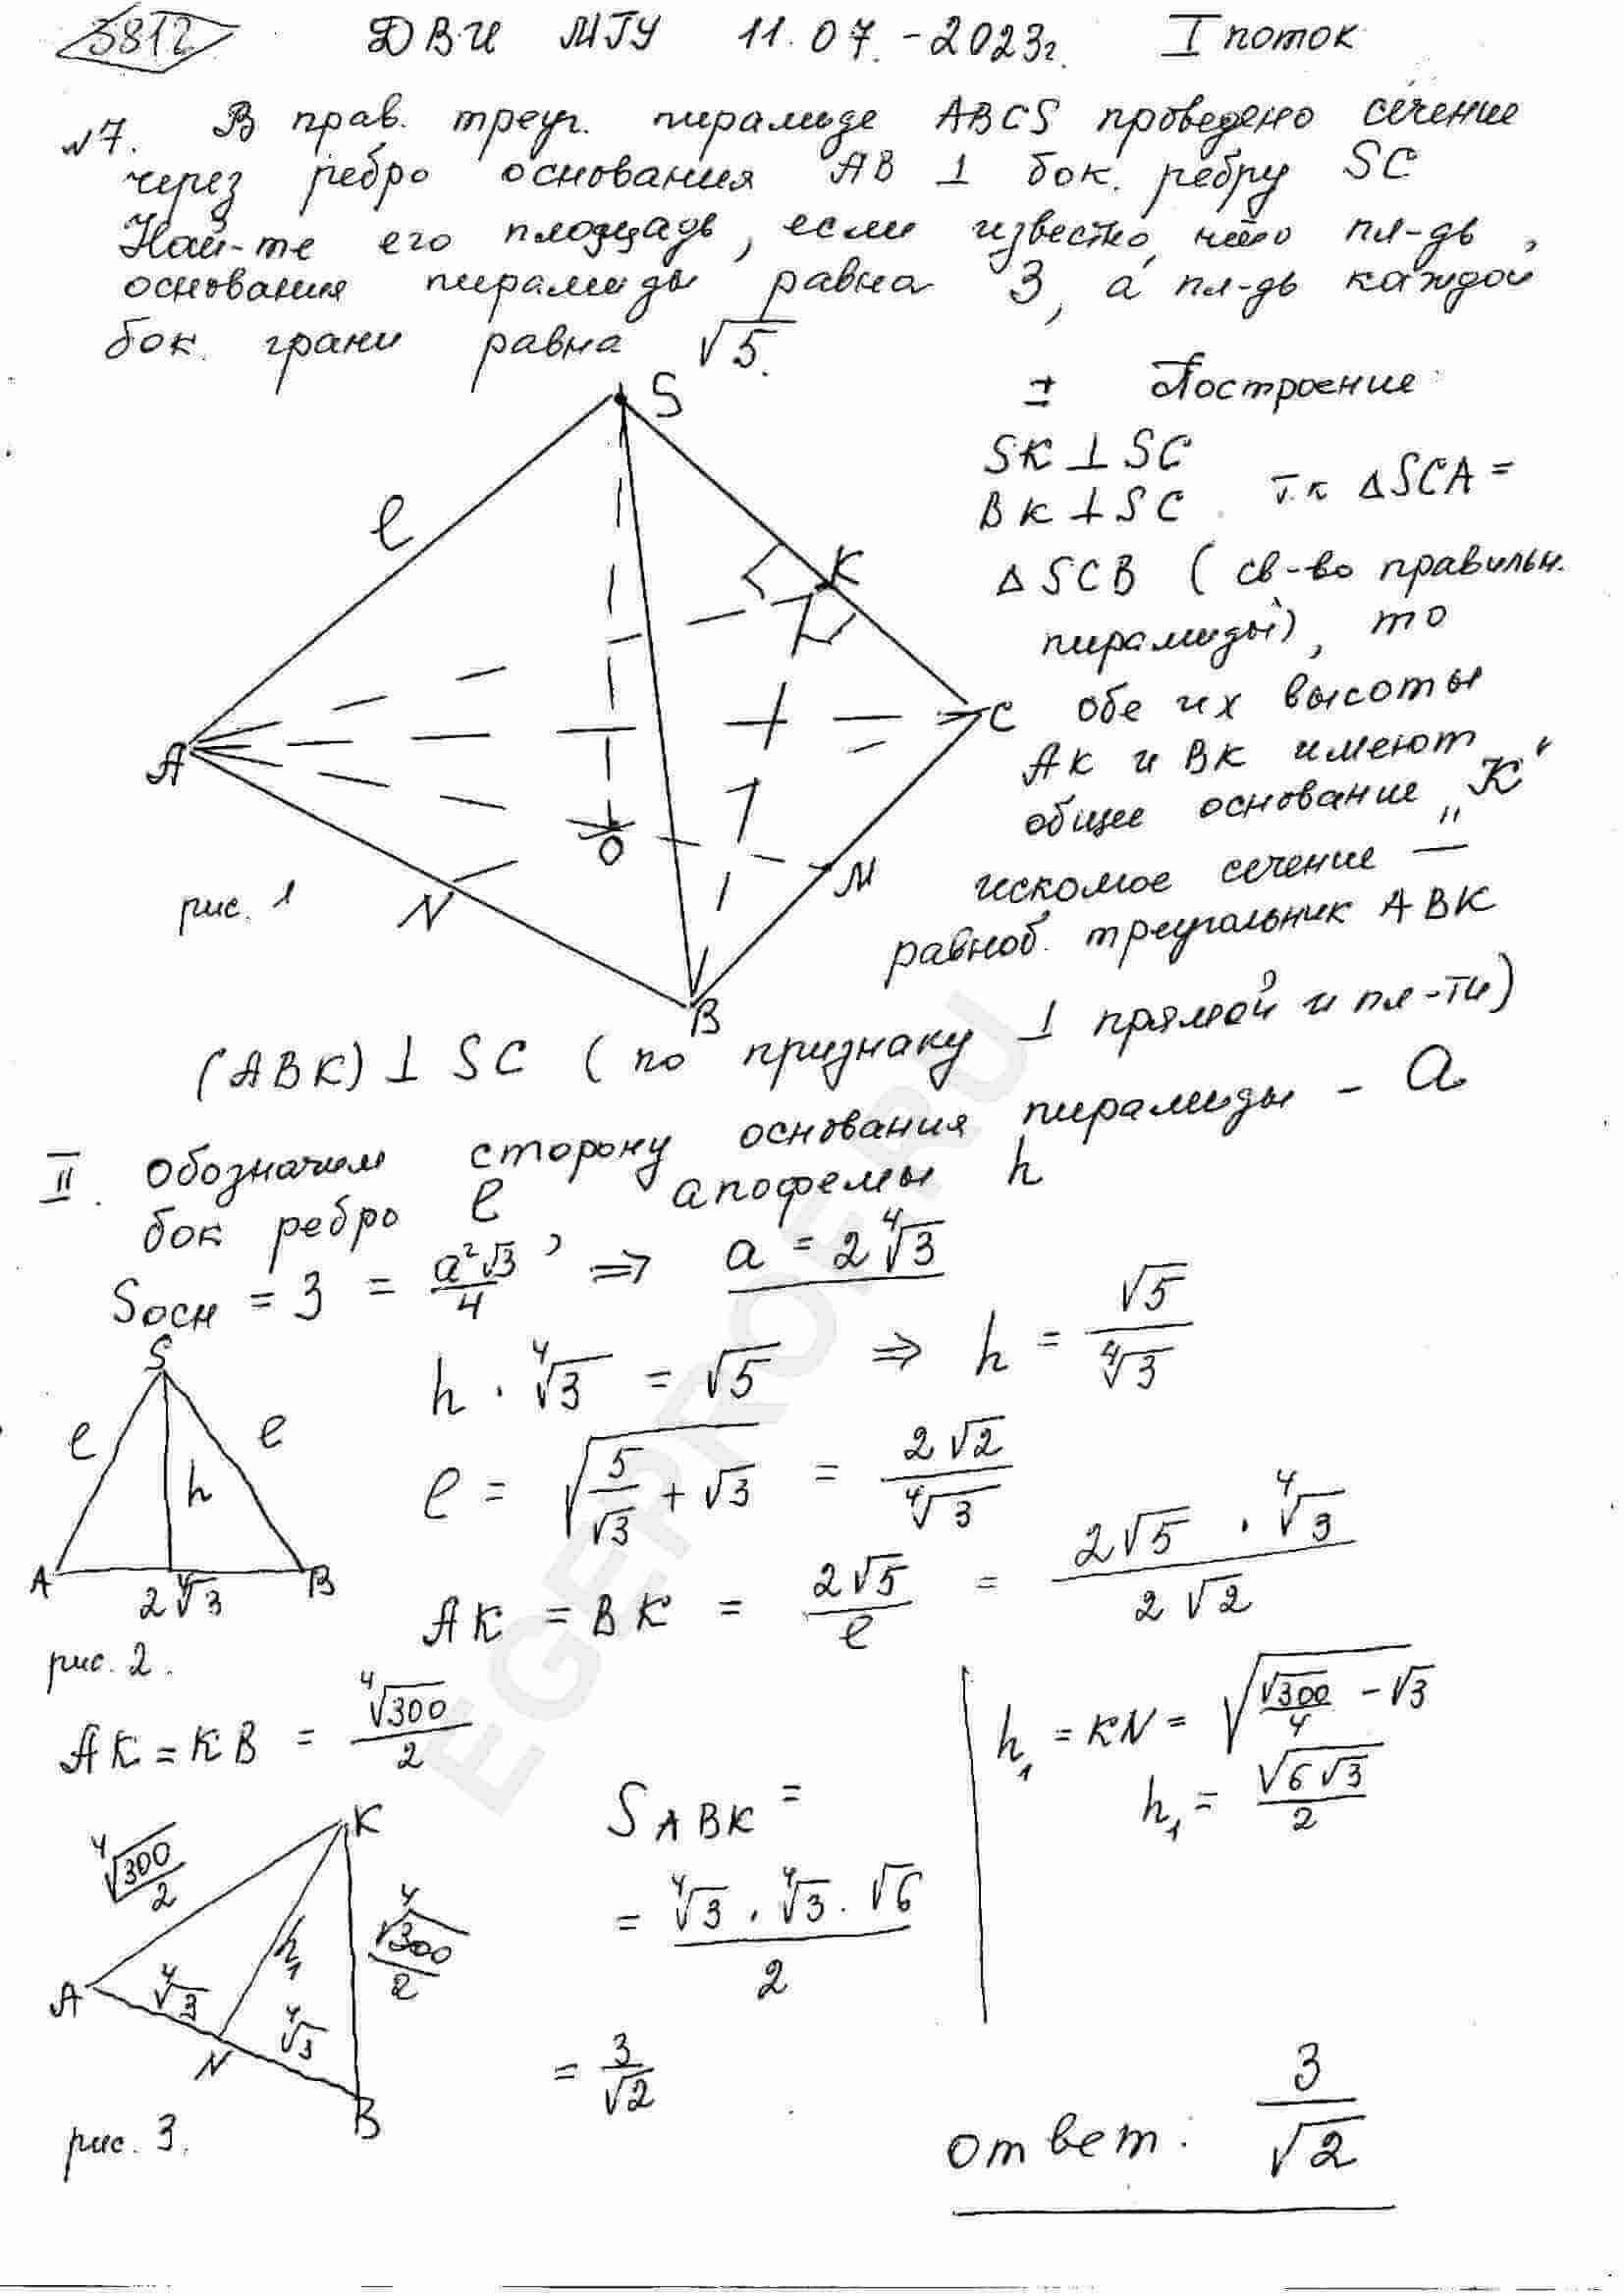 3812 ДВИ МГУ 11.07.-2023г. I поток
№7. В прав. треуг. пирамиде ABCS проведено сечение
через ребро основания AB ⊥ бок. ребру SC
Най-те его площадь, если известно, что пл-дь
основания пирамиды равна 3, а пл-дь каждой
бок. грани равна √5.
I Построение
SK ⊥ SC
BK ⊥ SC. т.к ΔSCA =
ΔSCB (св-во правильн.
пирамиды), то
обе их высоты
AK и BK имеют
общее основание „K"
искомое сечение —
равноб. треугольник ABK
S
l
K
A
C
O
M
N
B
рис. 1
(ABK) ⊥ SC (по признаку ⊥ прямой и пл-ти)
II. Обозначим сторону основания пирамиды - a
бок ребро l, апофемы h
Sосн = 3 = a²√3/4 ⇒ a = 2⁴√3
h · ⁴√3 = √5 ⇒ h = √5/⁴√3
l = √(5/√3 + √3) = 2√2/⁴√3
AK = BK = 2√5/l = 2√5 · ⁴√3/2√2
S
l
l
h
A
B
2⁴√3
рис. 2.
AK = KB = ⁴√300/2
h₁ = KN = √(√300/4 - √3)
h₁ = √(6√3)/2
S ABK =
= ⁴√3 · ⁴√3 · √6/2
= 3/√2
K
⁴√300/2
h₁
⁴√300/2
A
⁴√3
⁴√3
N
B
рис. 3.
ответ: 3/√2
EGEPROF.RU